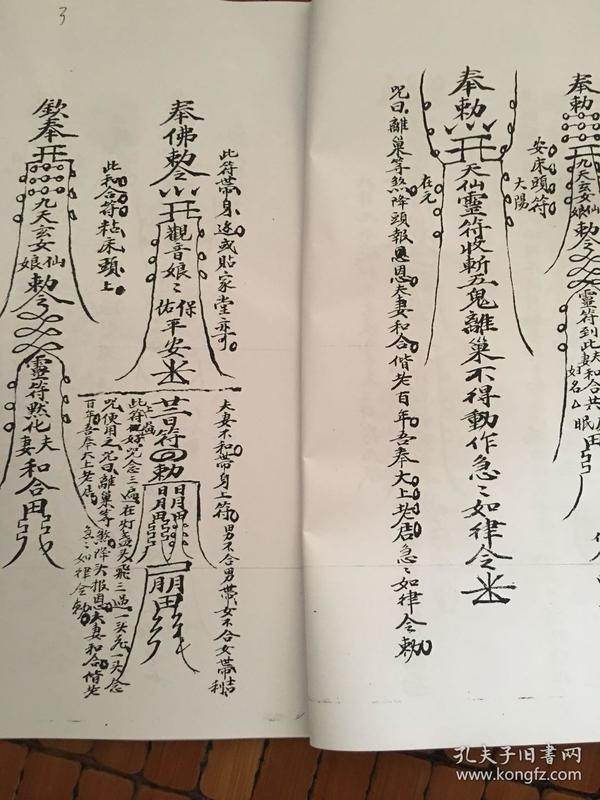 奉勅
九天玄女仙娘
勅令
靈符到此夫妻和合共
眠
安床頭符
大陽
奉勅
天仙靈符收斬五鬼離巢不得動作急〻如律令
在元
咒曰離巢等煞降頭報恩恩夫妻和合偕老百年吾奉大上老君急〻如律令勅
此符帶身边或貼家堂亦可
奉佛勅令
觀音娘〻保佑平安
此和合符粘床頭上
欽奉
九天玄女仙娘
勅令
靈符熱化夫妻和合
夫妻不和帶身上符男不合男帶女不合女帶
廿一日符
勅
日月
日月
朋
此符
咒念三遍在灯盏头飛三過一头
一头念
咒使用之咒曰離巢等煞降头报恩夫妻和合偕老
百年吾奉大上老君急〻如律令勅
3
孔夫子旧书网
www.kongfz.com